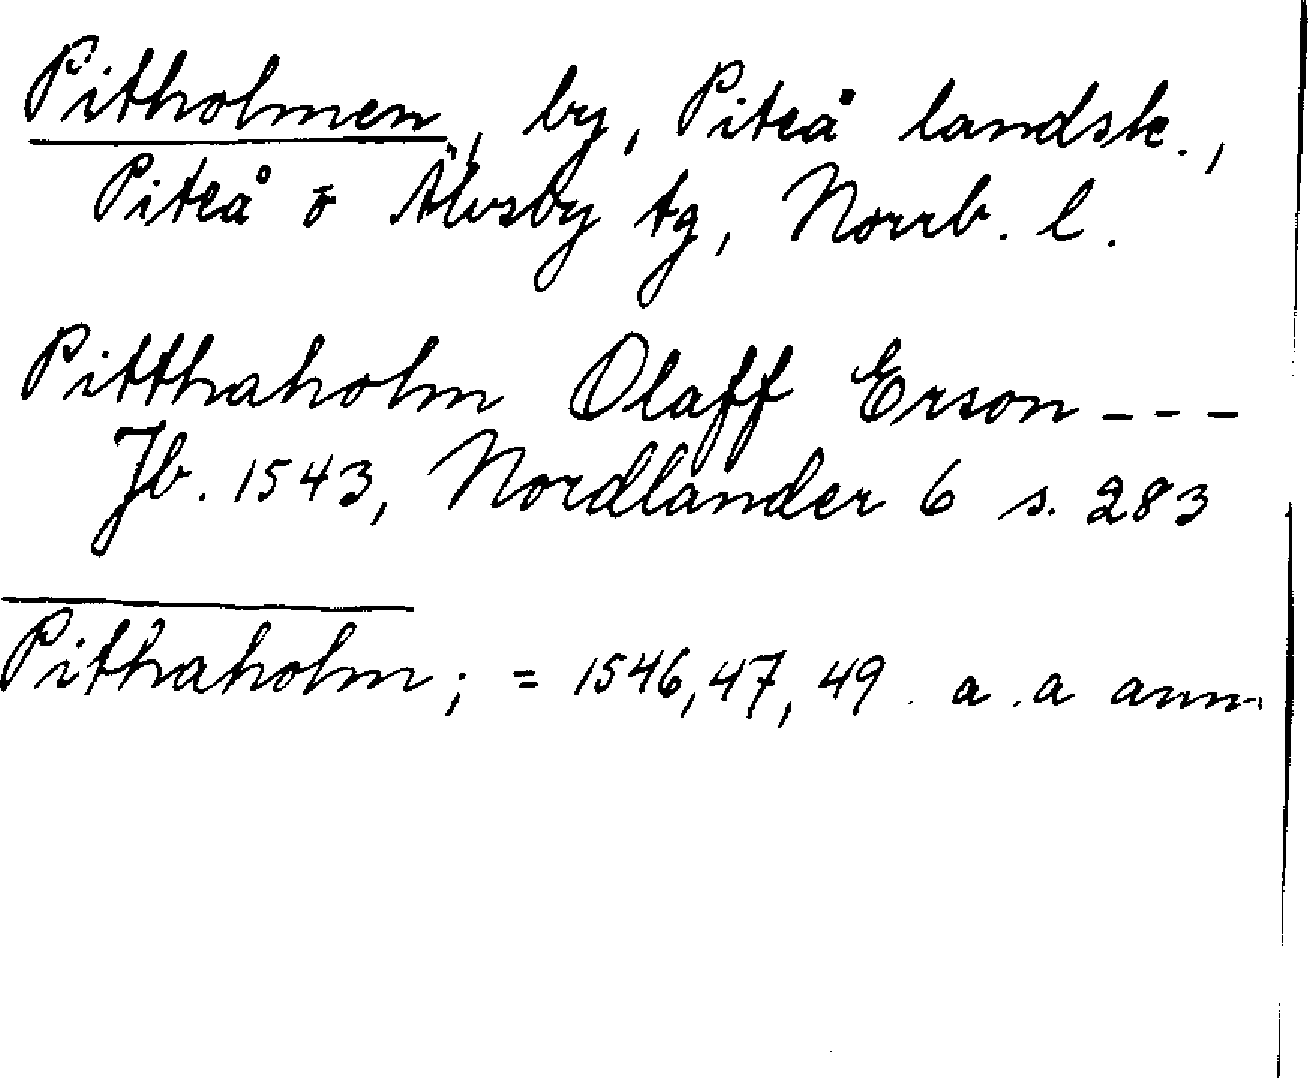 Pitholmen, by, Piteå landsk.,
Piteå o Älvsby tg, Norrb. l.
Pitthaholm Olaff Erson - - -
Jb. 1543, Nordlander 6 s. 283
Pithaholm; = 1546, 47, 49 . a . a anm